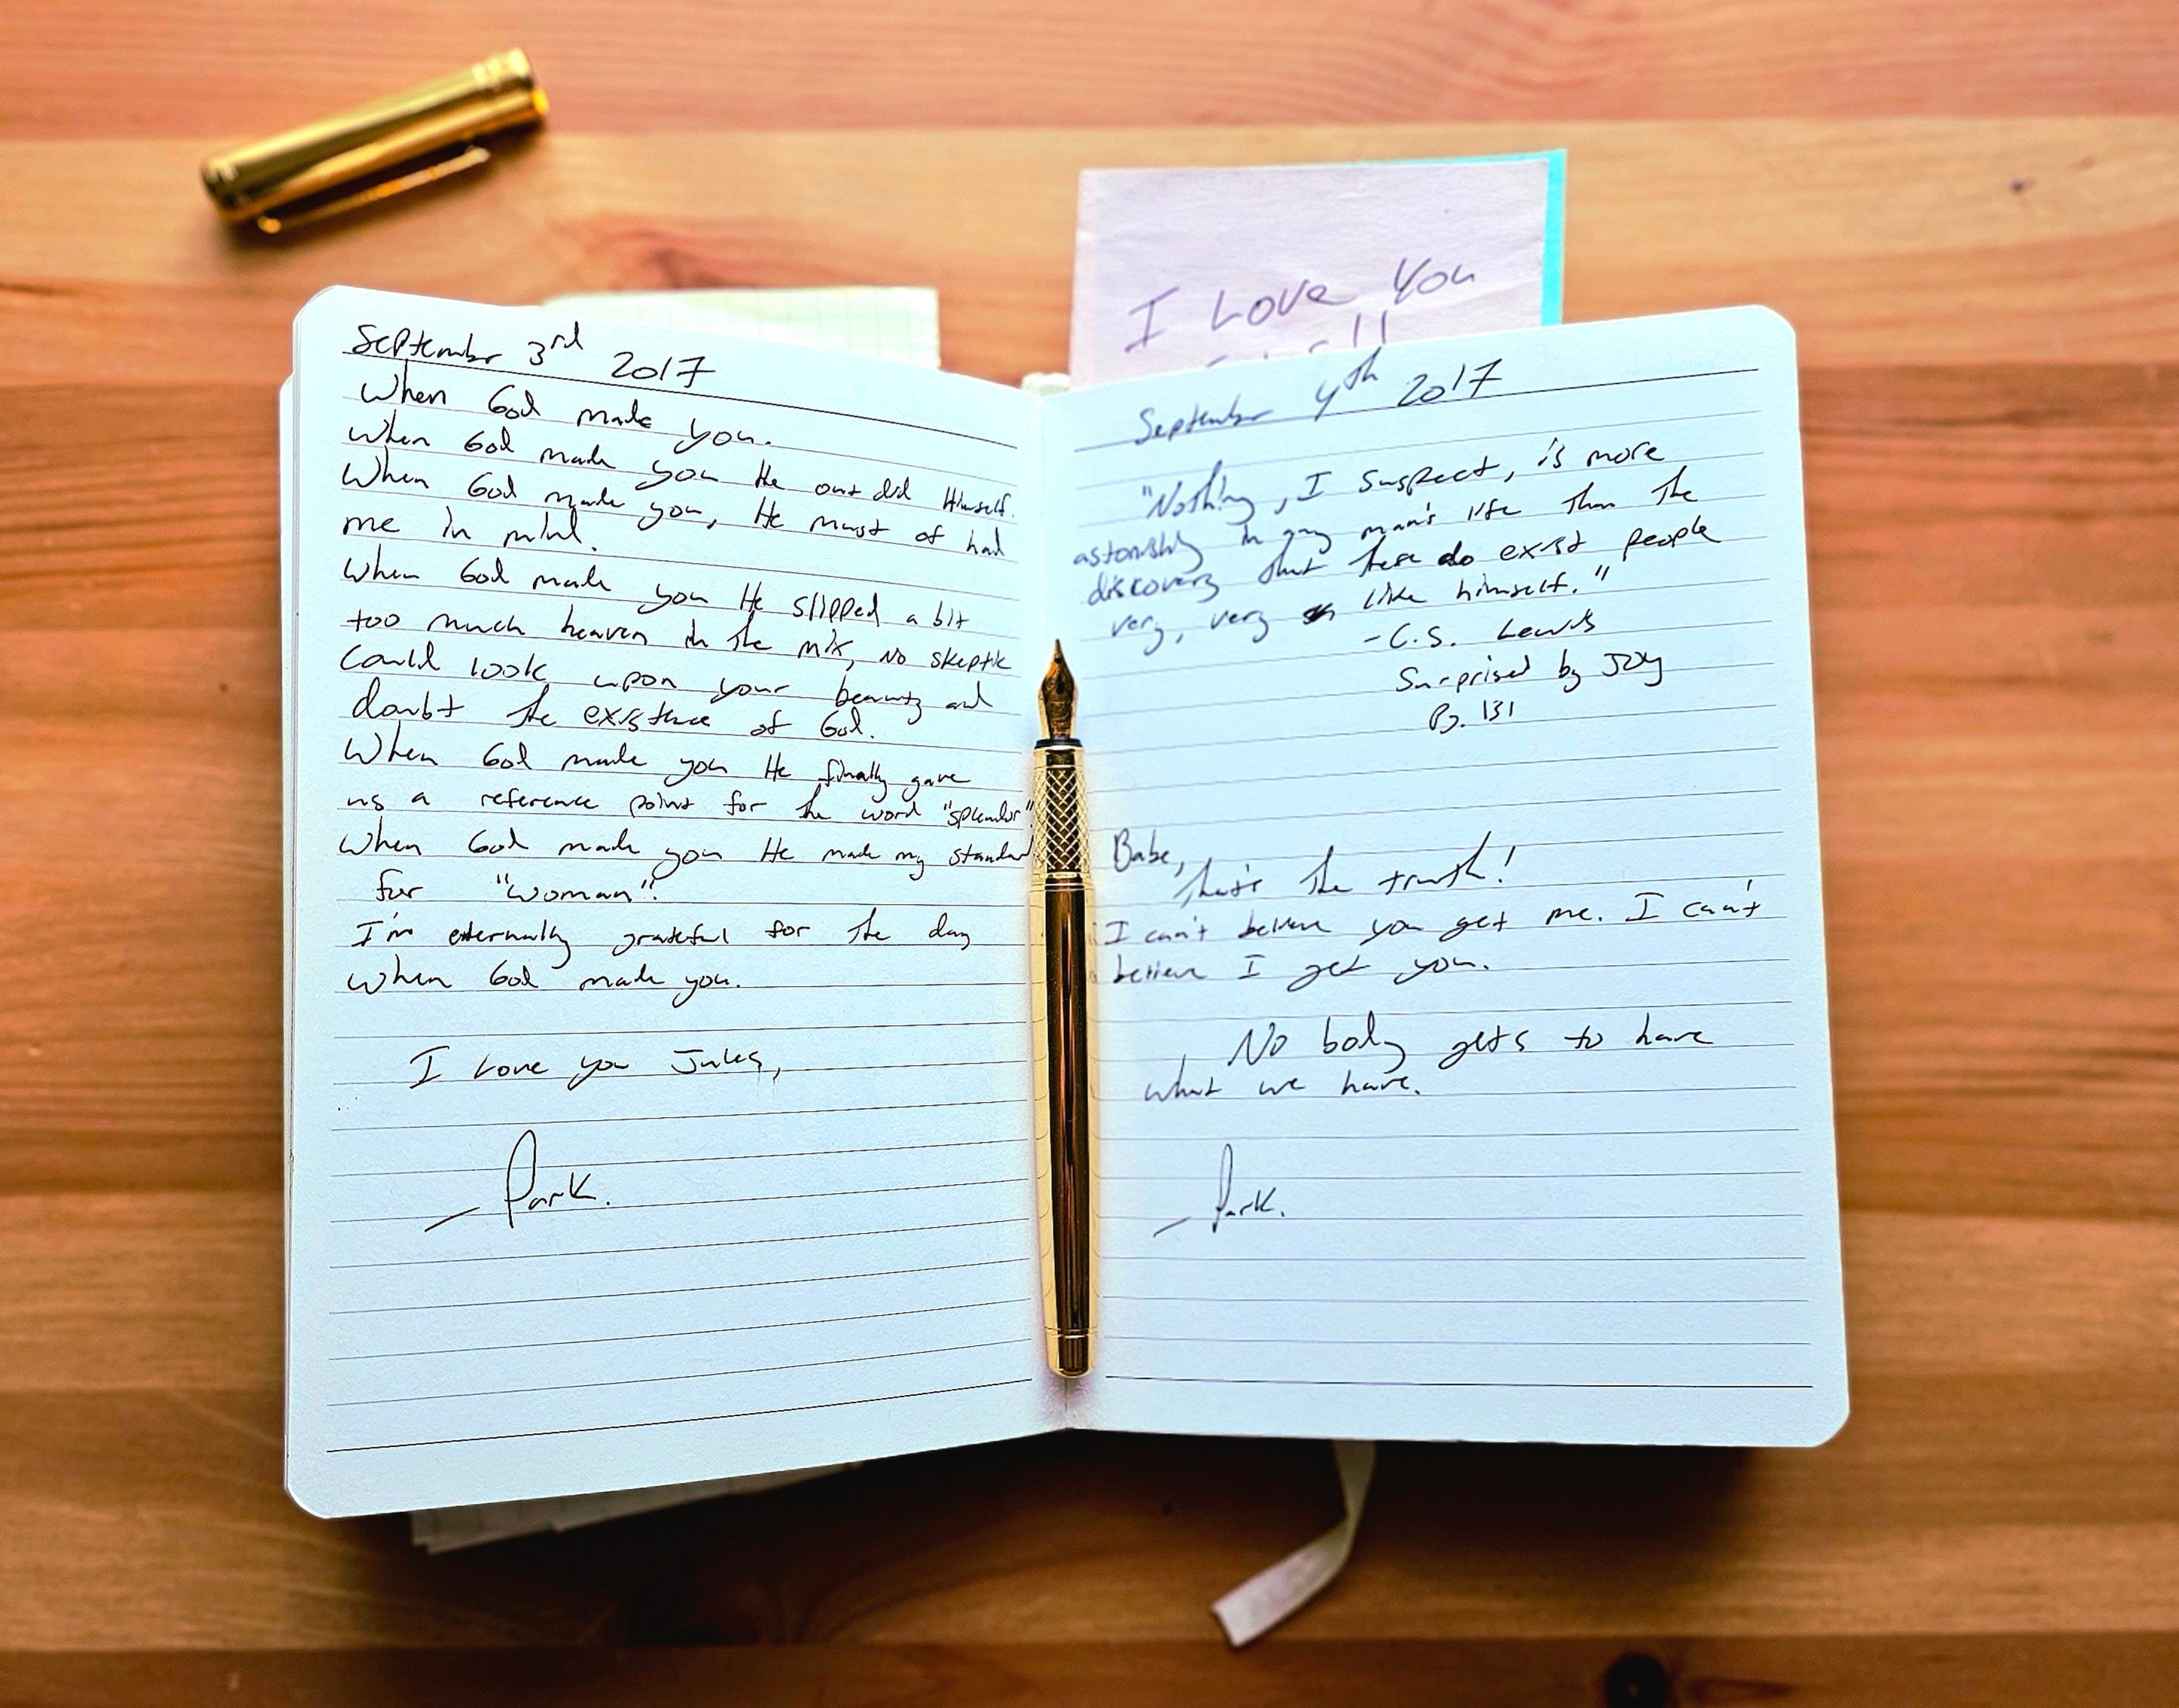 I Love You
September 3rd 2017
When God made you.
When God made you He out did Himself.
When God made you, He must of had
me in mind.
When God made you He slipped a bit
too much heaven in the mix, no skeptic
could look upon your beauty and
doubt the existence of God.
When God made you He finally gave
us a reference point for the word "splendor".
When God made you He made my standard
for "woman".
I'm eternally grateful for the day
when God made you.
I Love you Jules,
- Park.
September 4th 2017
"Nothing, I suspect, is more
astonishing in any man's life than the
discovery that there do exist people
very, very like himself."
-C.S. Lewis
Surprised by Joy
Pg. 131
Babe,
That's the truth!
I can't believe you get me. I can't
believe I get you.
No body gets to have
what we have.
- Park.